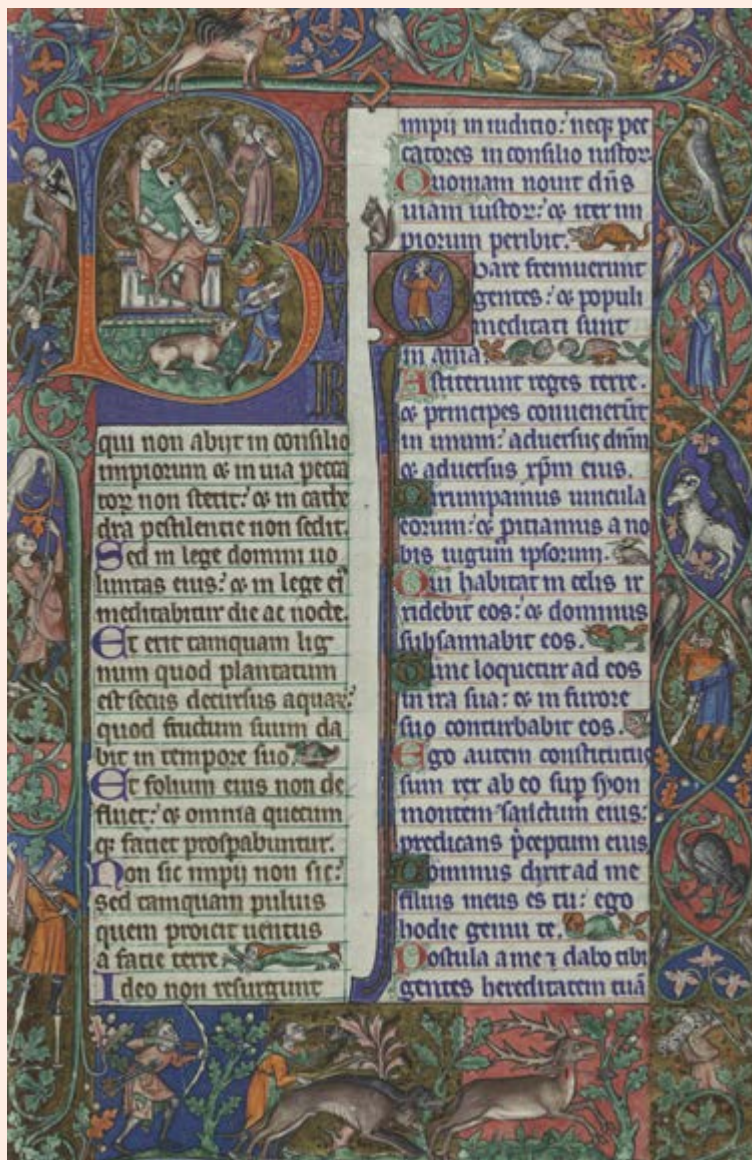 B
V
IR
qui non abijt in consilio
impiorum & in uia pecca
tor non stetit: & in cathe
dra pestilencie non sedit.
Sed in lege domini uo
luntas eius: & in lege ei
meditabitur die ac nocte.
Et erit tamquam lig
num quod plantatum
est secus decursus aquar:
quod fructum suum da
bit in tempore suo.
Et folium eius non de
fluet: & omnia quecum
q; faciet prospabuntur.
Non sic impij non sic:
sed tamquam puluis
quem proicit uentus
a facie terre.
Ideo non resurgunt
impij in iudicio: neq; pec
catores in consilio iustor
Quoniam nouit dns
uiam iustor: & iter im
piorum peribit.
Quare fremuerunt
gentes: & populi
meditati sunt
in ania.
Astiterunt reges terre.
& principes conuenerūt
in unum: aduersus dnm
& aduersus xpm eius.
Dirumpamus uincula
eorum: & piciamus a no
bis iugum ipsorum.
Qui habitat in celis ir
ridebit eos: & dominus
subsannabit eos.
Tunc loquetur ad eos
in ira sua: & in furore
suo conturbabit eos.
Ego autem constitutus
sum rex ab eo sup syon
montem sanctum eius:
predicans pceptum eius
Dominus dixit ad me
filius meus es tu: ego
hodie genui te.
Postula a me ⁊ dabo tibi
gentes hereditatem tuā